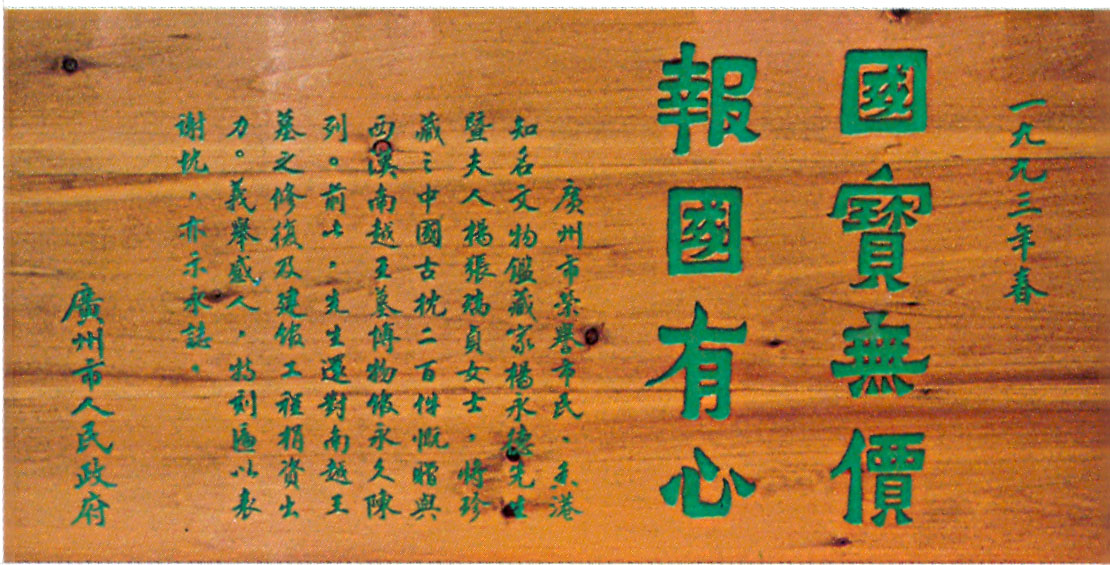 一九九三年春
國寶無價
報國有心
廣州市榮譽市民、香港
知名文物鑑藏家楊永德先生
暨夫人楊張瑞貞女士，將珍
藏之中國古枕二百件慨贈與
西漢南越王墓博物館永久陳
列。前此，先生還對南越王
墓之修復及建館工程捐資出
力。義舉感人，特刻匾以表
謝忱，亦示永誌。
廣州市人民政府